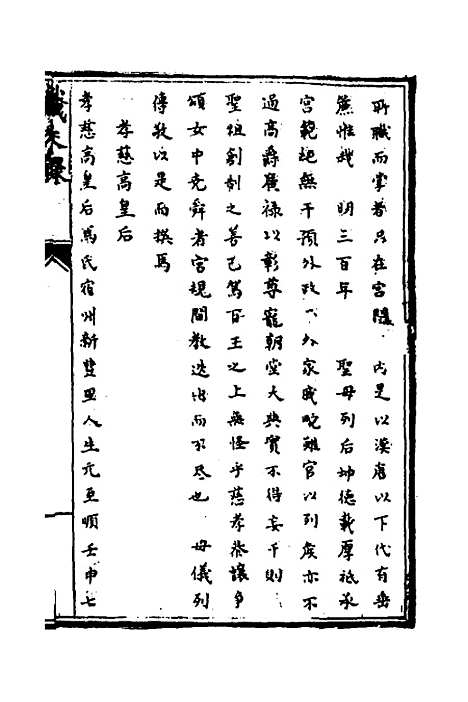 所職而掌者只在宮闈　內是以漢唐以下代有垂
簾惟我　明三百年　聖母列后坤德載厚祗承
宮範絕無干預外政一外家戚畹雖官以列侯亦不
過高爵廣祿以彰尊寵朝堂大典實不得妄干則
聖祖創制之善已駕百王之上無怪乎慈孝恭讓爭
頌女中堯舜者宮規閫教迭出而不尽也　母儀列
傳敬以是而撰焉
孝慈高皇后
孝慈高皇后馬氏宿州新豐里人生元至順壬申七
識朱錄